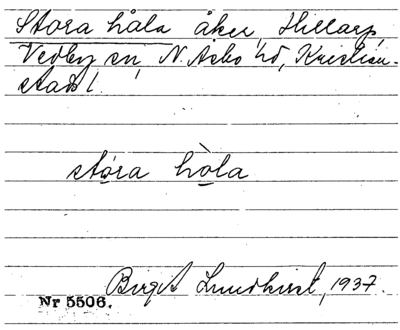 Stora håla åker, Hillarp,
Vedby sn, N. Åsbo hd, Kristian-
stads l.
stóra hòla
Birgit Lundkvist, 1937.
Nr 5506.